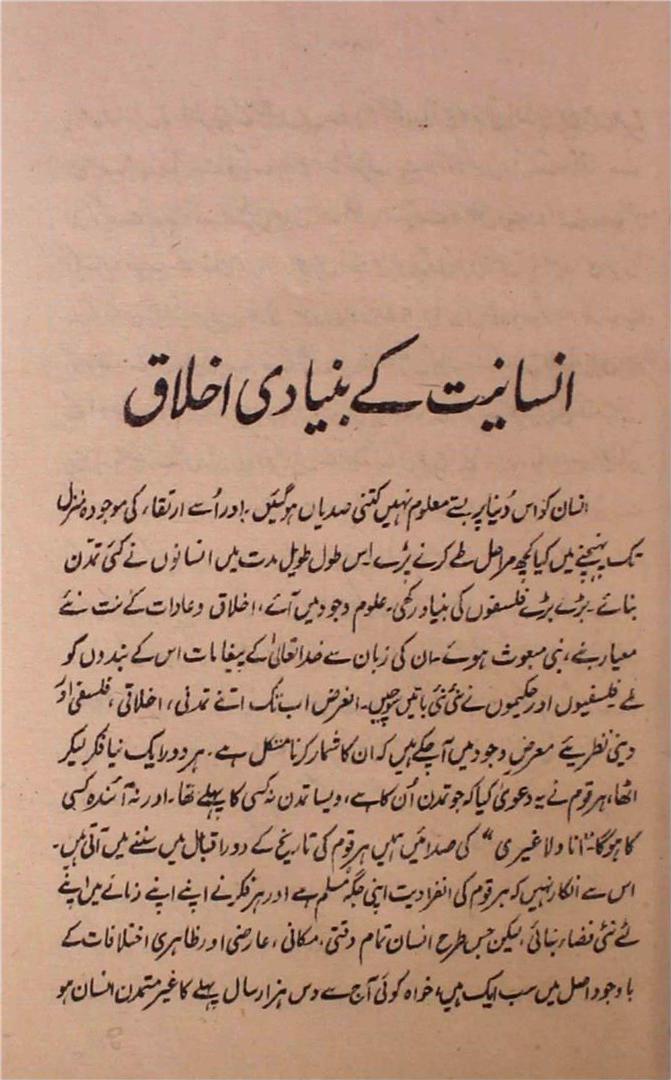 انسانیت کے بنیادی اخلاق
انسان کو اس دُنیا پر بستے معلوم نہیں کتنی صدیاں ہوگئیں۔ اور اُسے ارتقاء کی موجودہ منزل
تک پہنچنے میں کیا کچھ مراحل طے کرنے پڑے۔ اس طول طویل مدت میں انسانوں نے کئی تمدن
بنائے۔ بڑے بڑے فلسفوں کی بنیاد رکھی۔ علوم وجود میں آئے، اخلاق و عادات کے نت نئے
معیار بنے، نبی مبعوث ہوئے۔ ان کی زبان سے خدا تعالیٰ کے پیغامات اس کے بندوں کو
ملے فلسفیوں اور حکیموں نے نئی نئی باتیں سوچیں۔ الغرض اب تک اتنے تمدنی، اخلاقی، فلسفی اور
دینی نظریئے معرضِ وجود میں آچکے ہیں کہ ان کا شمار کرنا مشکل ہے۔ ہر دور ایک نیا فکر لیکر
اٹھا، ہر قوم نے یہ دعویٰ کیا کہ جو تمدن اُن کا ہے، ویسا تمدن نہ کسی کا پہلے تھا۔ اور نہ آئندہ کسی
کا ہوگا۔ "انا ولا غیری" کی صدائیں ہمیں ہر قوم کی تاریخ کے دورِ اقبال میں سننے میں آتی ہیں۔
اس سے انکار نہیں کہ ہر قوم کی انفرادیت اپنی جگہ مسلم ہے اور ہر فکر نے اپنے اپنے زمانے میں اپنے
لئے نئی فضاء بنائی، لیکن جس طرح انسان تمام وقتی، مکانی، عارضی اور ظاہری اختلافات کے
باوجود اصل میں سب ایک ہیں، خواہ کوئی آج سے دس ہزار سال پہلے کا غیر متمدن انسان ہو
9